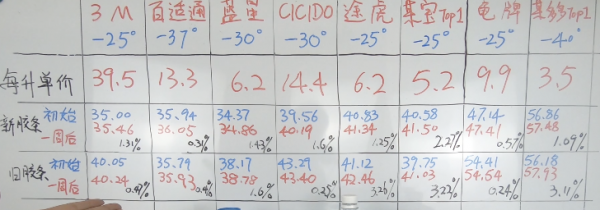 3M 百适通 蓝星 CICIDO 途虎 某宝Top1 龟牌 某多Top1
-25° -37° -30° -30° -25° -25° -25° -40°
每升单价 39.5 13.3 6.2 14.4 6.2 5.2 9.9 3.5
新胶条 初始 35.00 35.94 34.37 39.56 40.83 40.58 47.14 56.86
一周后 35.46 36.05 34.86 40.19 41.34 41.50 47.41 57.48
1.31% 0.31% 1.43% 1.6% 1.25% 2.27% 0.57% 1.09%
旧胶条 初始 40.05 35.79 38.17 43.29 41.12 39.75 54.41 56.18
一周后 40.24 35.93 38.78 43.40 42.46 41.03 54.54 57.93
1.6% 0.25% 3.26% 3.22% 0.24% 3.11%